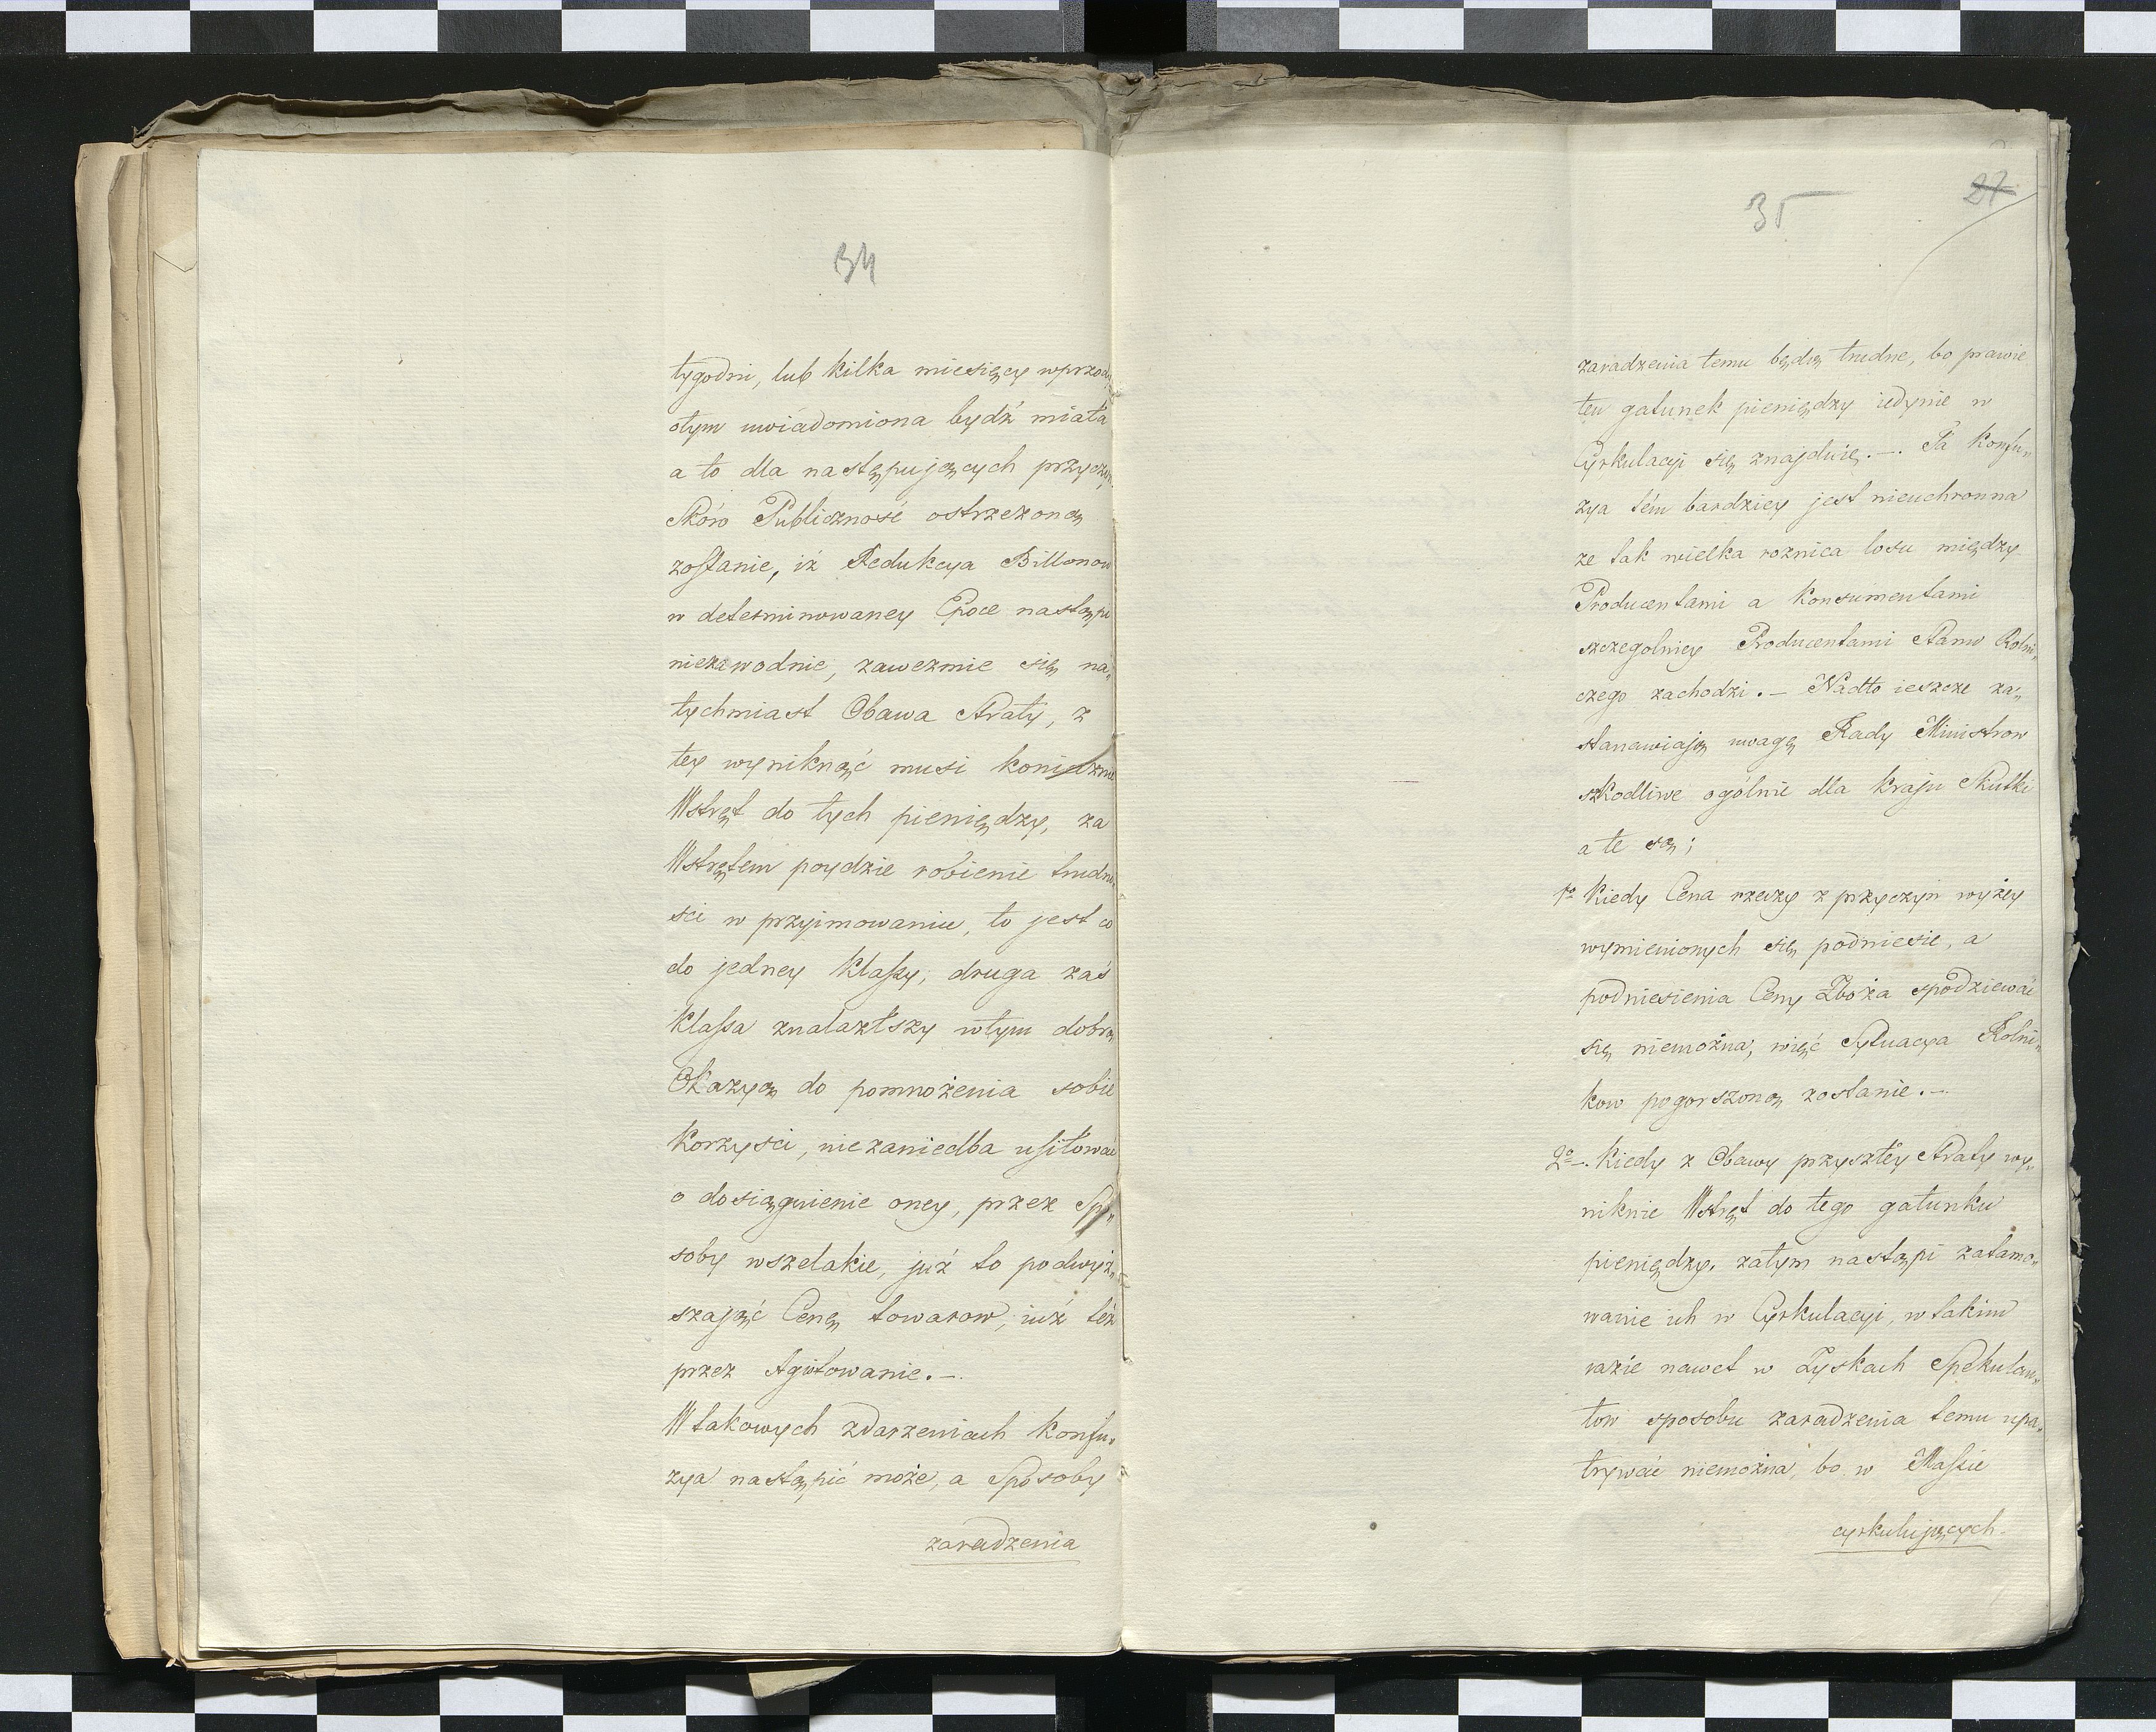 34
tygodni, lub kilka miesięcy wprzod
otym uwiadomiona bydź miała
a to dla następujących przyczyn.
Skóro Publiczność ostrzezoną
zostanie, iż Redukcya Billonow
w determinowaney Epoce nastąpi
niezawodnie, zawezmie się na„
tychmiast Obawa Straty, z
tey wyniknąć musi koniecznie
Wstręt do tych pieniędzy, za
Wstrętem poydzie robienie trudno„
ści w przyimowaniu, to jest co
do jedney klassy; druga zaś
klassa znalazłszy wtym dobrą
Okazyą do pomnożenia sobie
Korzyści, niezaniedba usiłować
o dosiągnienie oney, przez Spo„
soby wszelakie, już to podwyż„
szając Cenę towarow, iuż też
przez Agiotowanie.—.
W takowych zdarzeniach konfu„
zya nastąpić może, a Sposoby
zaradzenia
35
27
zaradzenia temu będą trudne, bo prawie
ten gatunek pieniędzy iedynie w
Cyrkulacyi się znajduie.—. Ta Konfu„
zya tém bardziey jest nieuchronna
ze tak wielka roznica losu między
Producentami a Konsumentami
szczegolniey Producentami Stanu Rolni„
czego zachodzi.— Nadto ieszcze za„
stanawiają uwagę Rady Ministrow
szkodliwe ogólnie dla kraju Skutki
a te są;
1o Kiedy Cena rzeczy z przyczyn wyżey
wymienionych się podniesie, a
podniesienia Ceny Zboża spodziewać
się niemożna, więc Sytuacya Rolni„
kow pogorszoną zostanie.—
2o—. Kiedy z Obawy przyszłey Straty wy„
niknie Wstręt do tego gatunku
pieniędzy, zatym nastąpi zatamo„
wanie ich w Cyrkulacyi, w takim
razie nawet w Zyskach Spekulan„
tow sposobu zaradzenia temu upa„
trywać niemożna, bo w Massie
cyrkulujących—